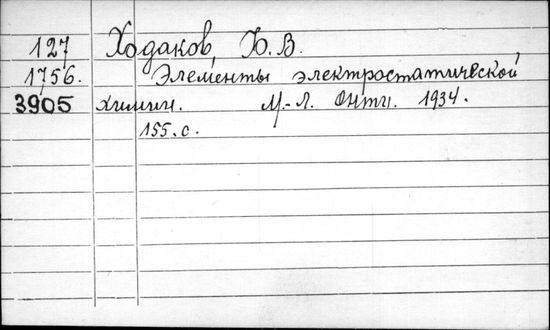 127 Ходаков, Ю. В.
1756. Элементы электростатической
3905 химии. М.-Л. Онти. 1934.
155. с.